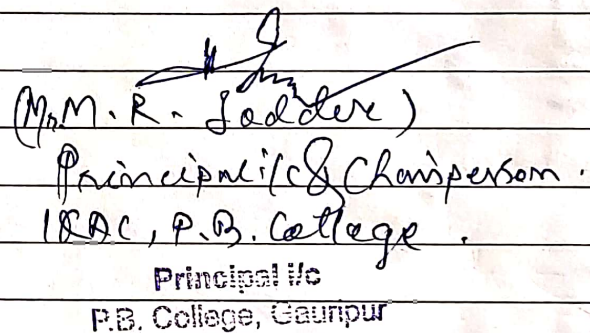 (Mr. M. R. Joddar)
Principal i/c & Chairperson.
IQAC, P.B. College.
Principal i/c
P.B. College, Gauripur